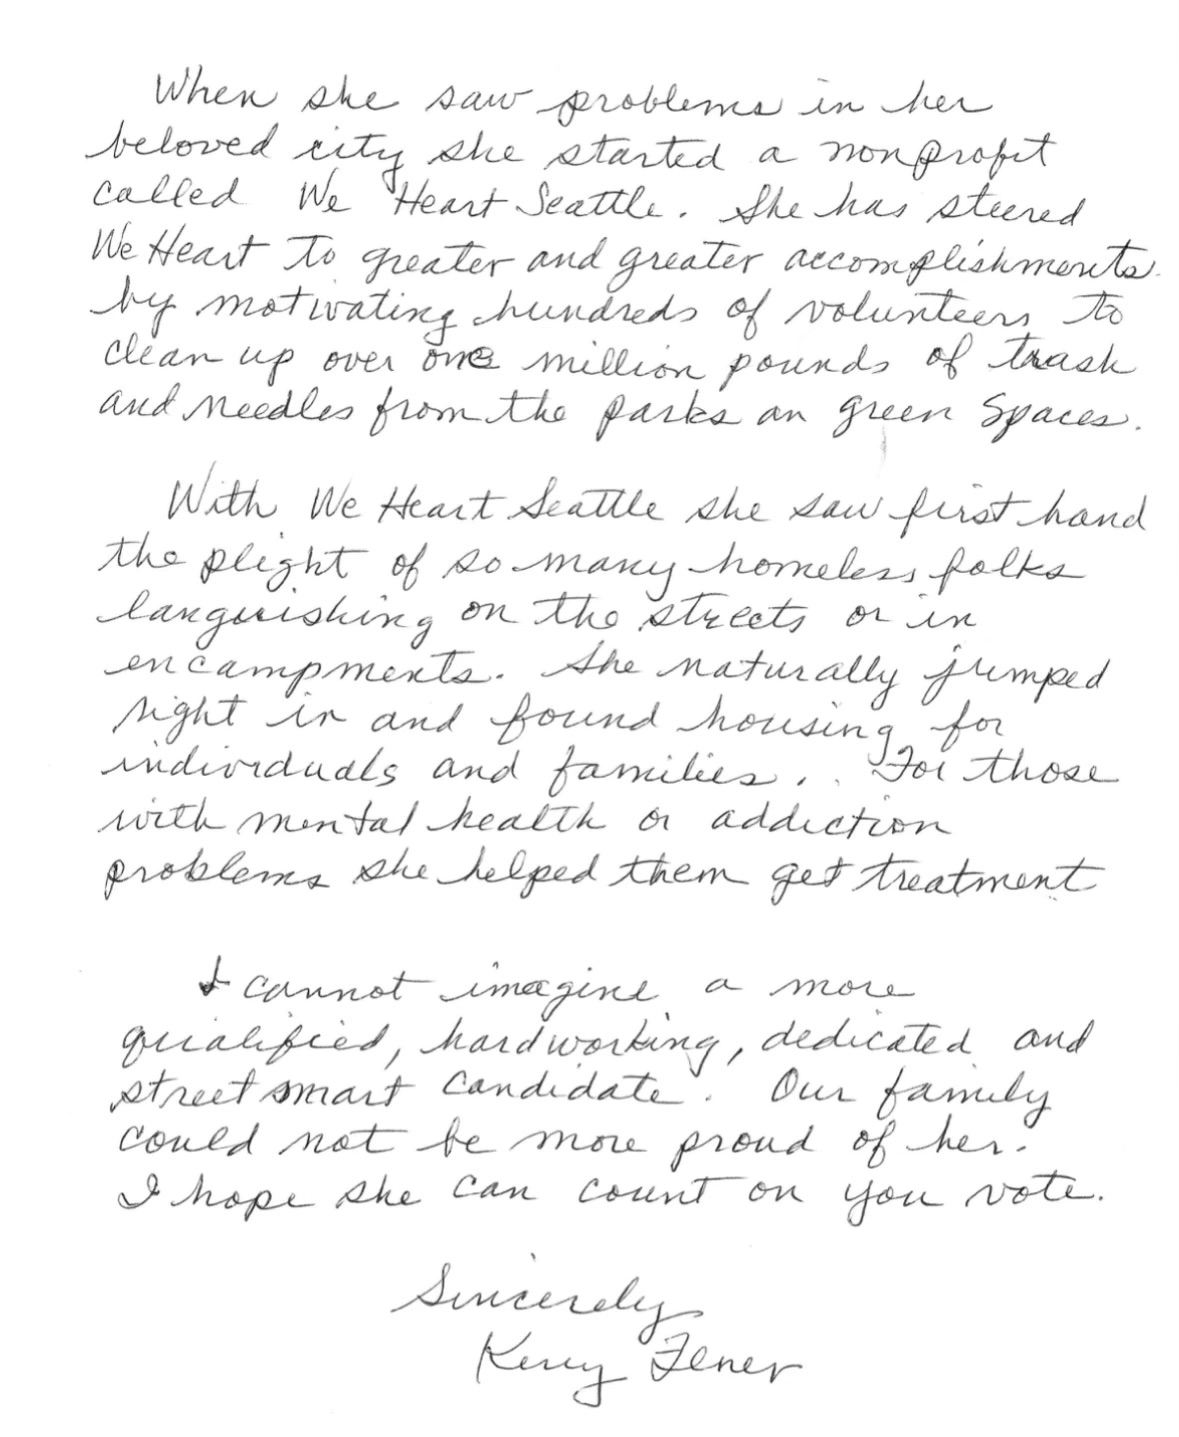 When she saw problems in her
beloved city she started a nonprofit
called We Heart Seattle. She has steered
We Heart to greater and greater accomplishments
by motivating hundreds of volunteers to
clean up over one million pounds of trash
and needles from the parks an green spaces.
With We Heart Seattle she saw first hand
the plight of so many homeless folks
languishing on the streets or in
encampments. She naturally jumped
right in and found housing for
individuals and families. For those
with mental health or addiction
problems she helped them get treatment
I cannot imagine a more
qualified, hardworking, dedicated and
street smart candidate. Our family
could not be more proud of her.
I hope she can count on you vote.
Sincerely